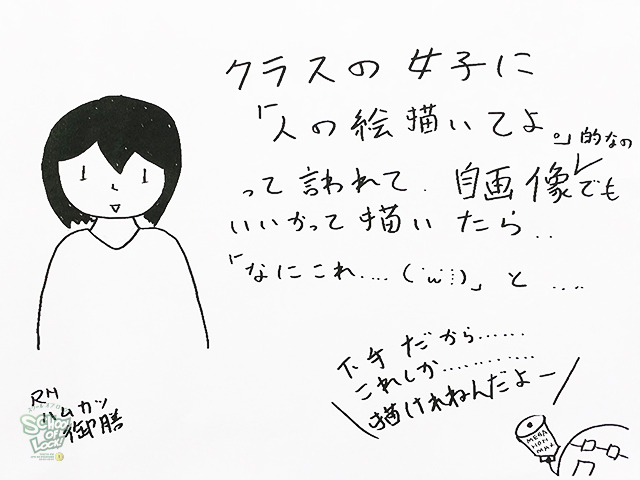 クラスの女子に
「人の絵描いてよ。」的なの
って言われて、自画像でも
いいかって描いたら..
「なにこれ....(˙ω˙⁝)」と ....
下手だから......
これしか..........
描けれねんだよー
RN
ハムカツ
御膳
SCHOOL
OF
LOCK!
MEGA
HORI
MAX